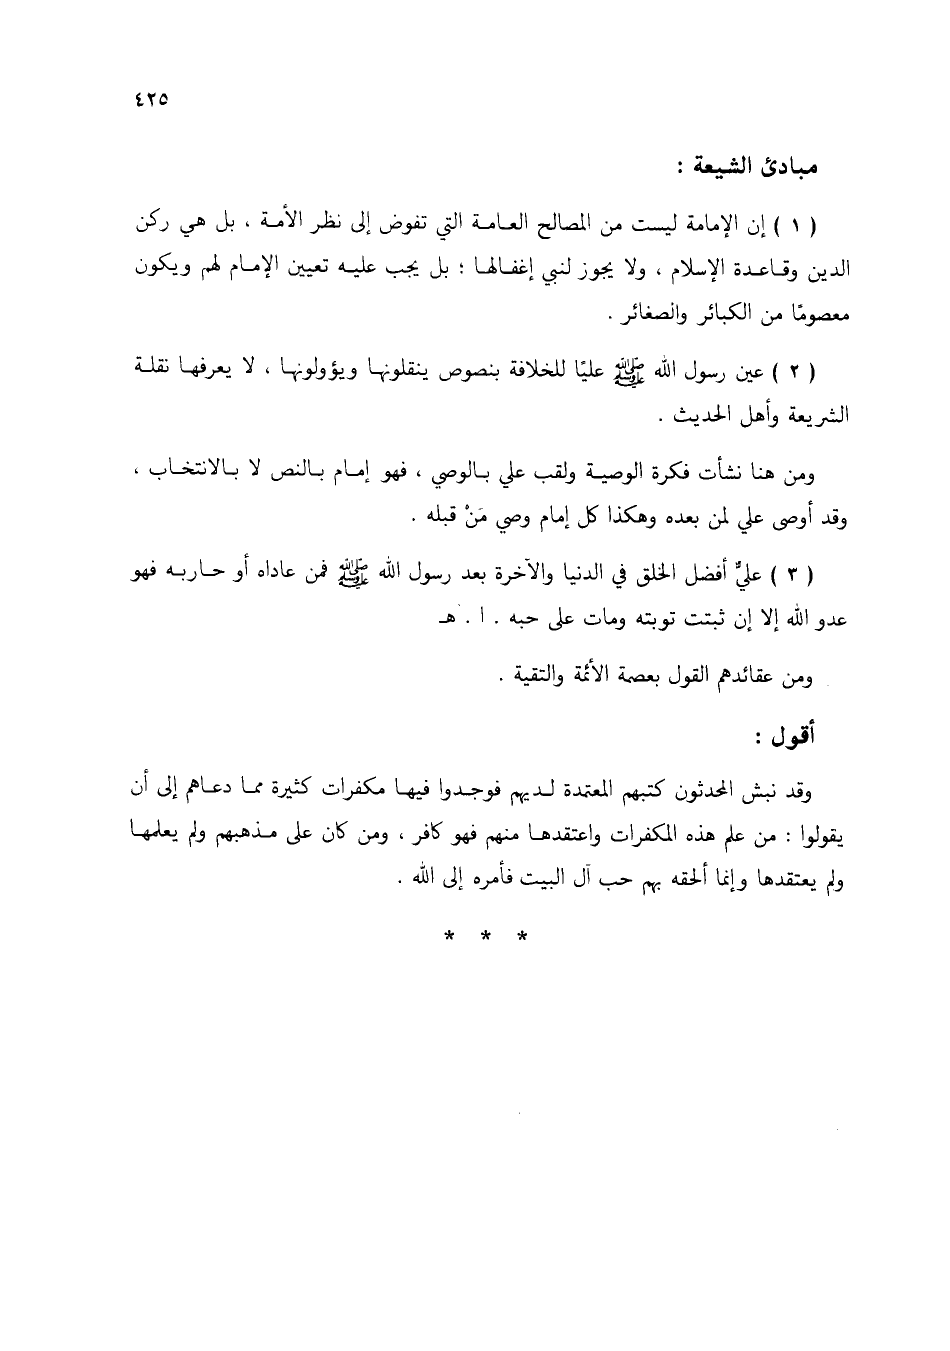 ٤٢٥
مبادئ الشيعة :
( ١ ) إن الإمامة ليست من المصالح العامة التي تفوض إلى نظر الأمة ، بل هي ركن
الدين وقاعدة الإسلام ، ولا يجوز لنبي إغفالها ؛ بل يجب عليه تعيين الإمام لهم ويكون
معصومًا من الكبائر والصغائر .
( ٢ ) عين رسول الله ﷺ عليًا للخلافة بنصوص ينقلونها ويؤولونها ، لا يعرفها نقلة
الشريعة وأهل الحديث .
ومن هنا نشأت فكرة الوصية ولقب علي بالوصي ، فهو إمام بالنص لا بالانتخاب ،
وقد أوصى علي لمن بعده وهكذا كل إمام وصي مَنْ قبله .
( ٣ ) عليٌّ أفضل الخلق في الدنيا والآخرة بعد رسول الله ﷺ فمن عاداه أو حاربه فهو
عدو الله إلا إن ثبتت توبته ومات على حبه . ا . هـ
ومن عقائدهم القول بعصمة الأئمة والتقية .
أقول :
وقد نبش المحدثون كتبهم المعتمدة لديهم فوجدوا فيها مكفرات كثيرة مما دعاهم إلى أن
يقولوا : من علم هذه المكفرات واعتقدها منهم فهو كافر ، ومن كان على مذهبهم ولم يعلمها
ولم يعتقدها وإنما ألحقه بهم حب آل البيت فأمره إلى الله .
* * *